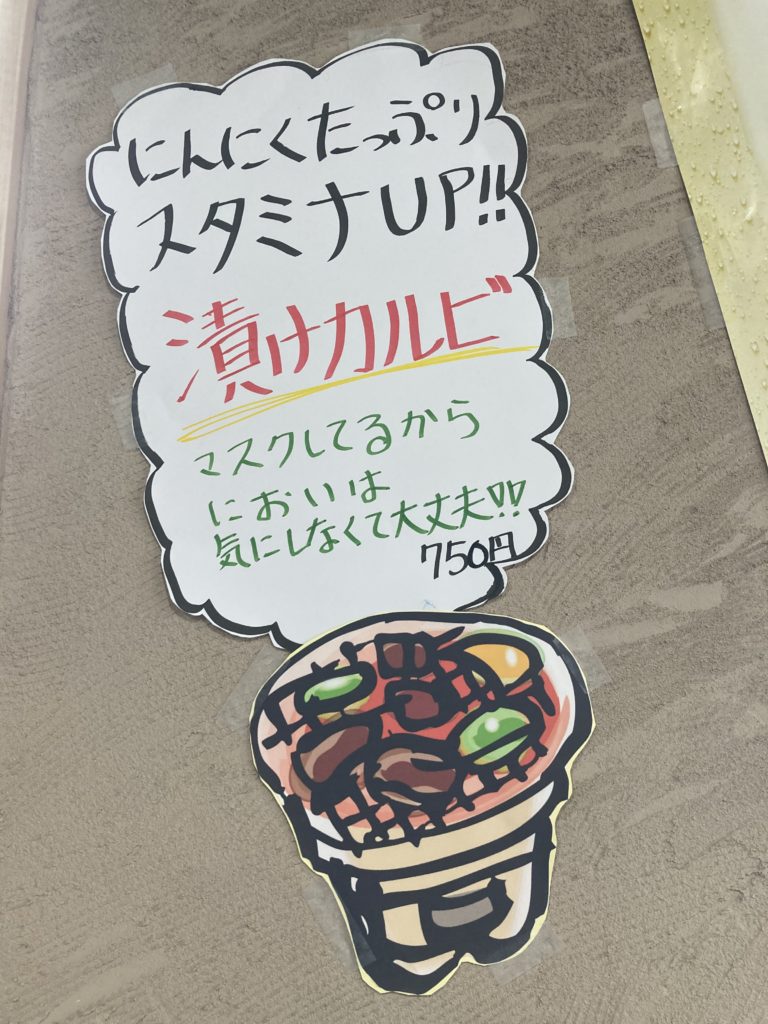 にんにくたっぷり
スタミナUP!!
漬けカルビ
マスクしてるから
においは
気にしなくて大丈夫!!
750円